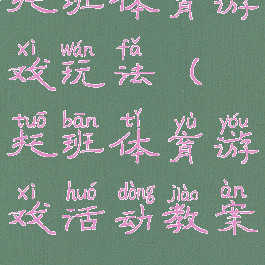 托班体育游
xì wán fǎ
戏玩法（
tuō bān tǐ yù yóu
托班体育游
xì huó dòng jiào àn
戏活动教案